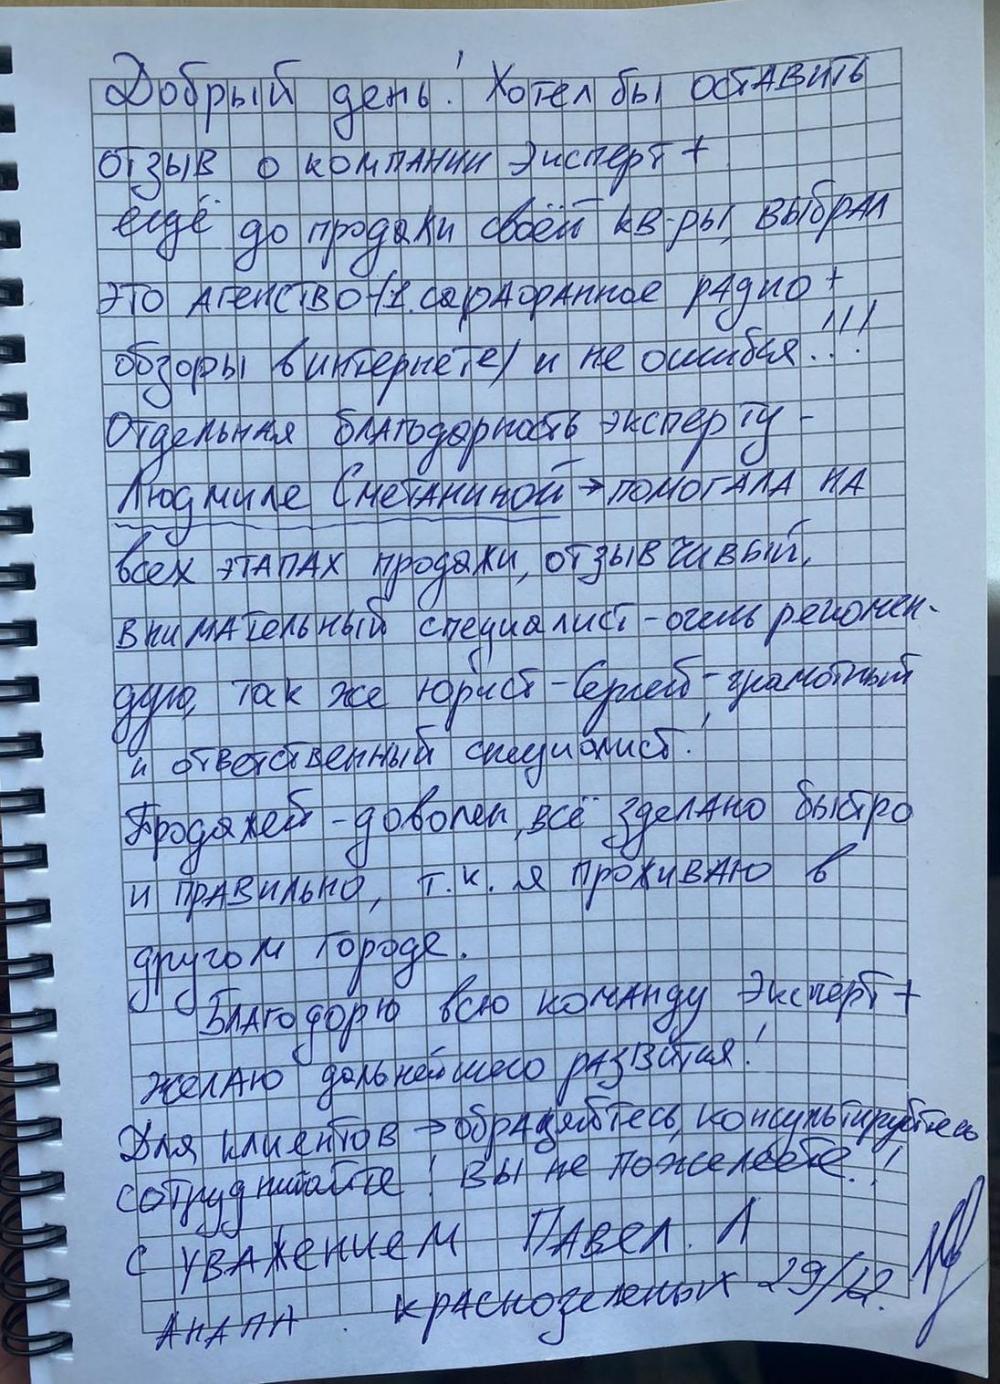 Добрый день! Хотел бы оставить
отзыв о компании Эксперт +
ещё до продажи своей кв-ры, выбрал
это агенство (1. сарафанное радио +
обзоры в интернете) и не ошибся..!!!
Отдельная благодарность эксперту -
Людмиле Сметаниной → помогала на
всех этапах продажи, отзывчивый,
внимательный специалист - очень рекомен-
дую, так же юрист - Сергей - грамотный
и ответственный специалист!
Продажей - доволен, всё зделано быстро
и правильно, т.к. я проживаю в
другом городе.
Благодорю всю команду Эксперт +
желаю дальнейшего развития!
Для клиентов → обращяйтесь, консультируйтесь
сотрудничайте! Вы не пожелеете.!!
С уважением Павел. Л
Анапа. Краснозеленых 29/12.